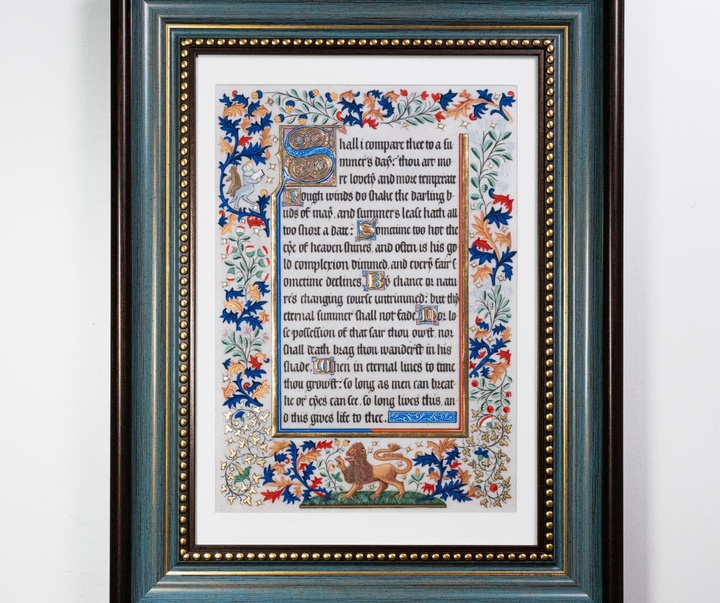 Shall i compare thee to a su
mmer's day: thou art mo
re lovely and more temprate
Rough winds do shake the darling b
uds of may, and summer's lease hath all
too short a date: Sometime too hot the
eye of heaven shines, and often is his go
ld complexion dimmed, and every fair s
ometime declines. By chance or natu
re's changing course untrimmed: but thy
eternal summer shall not fade. Nor lo
se possession of that fair thou ow'st, nor
shall death brag thou wander'st in his
shade. When in eternal lines to time
thou grow'st: so long as men can breat
he or eyes can see, so long lives this, an
d this gives life to thee.